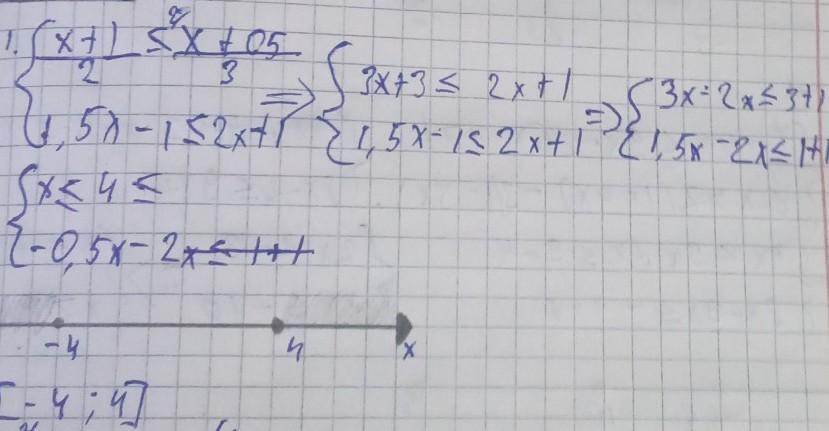 1. { (x+1)/2 ≤ (x+05)/3 => { 3x+3 ≤ 2x+1 => { 3x-2x ≤ 3+1
{ 1,5x-1 ≤ 2x+1 { 1,5x-1 ≤ 2x+1 { 1,5x-2x ≤ 1+1
{ x ≤ 4 ≤
{ -0,5x-2x ≤ 1+1
-4 4 x
[-4; 4]